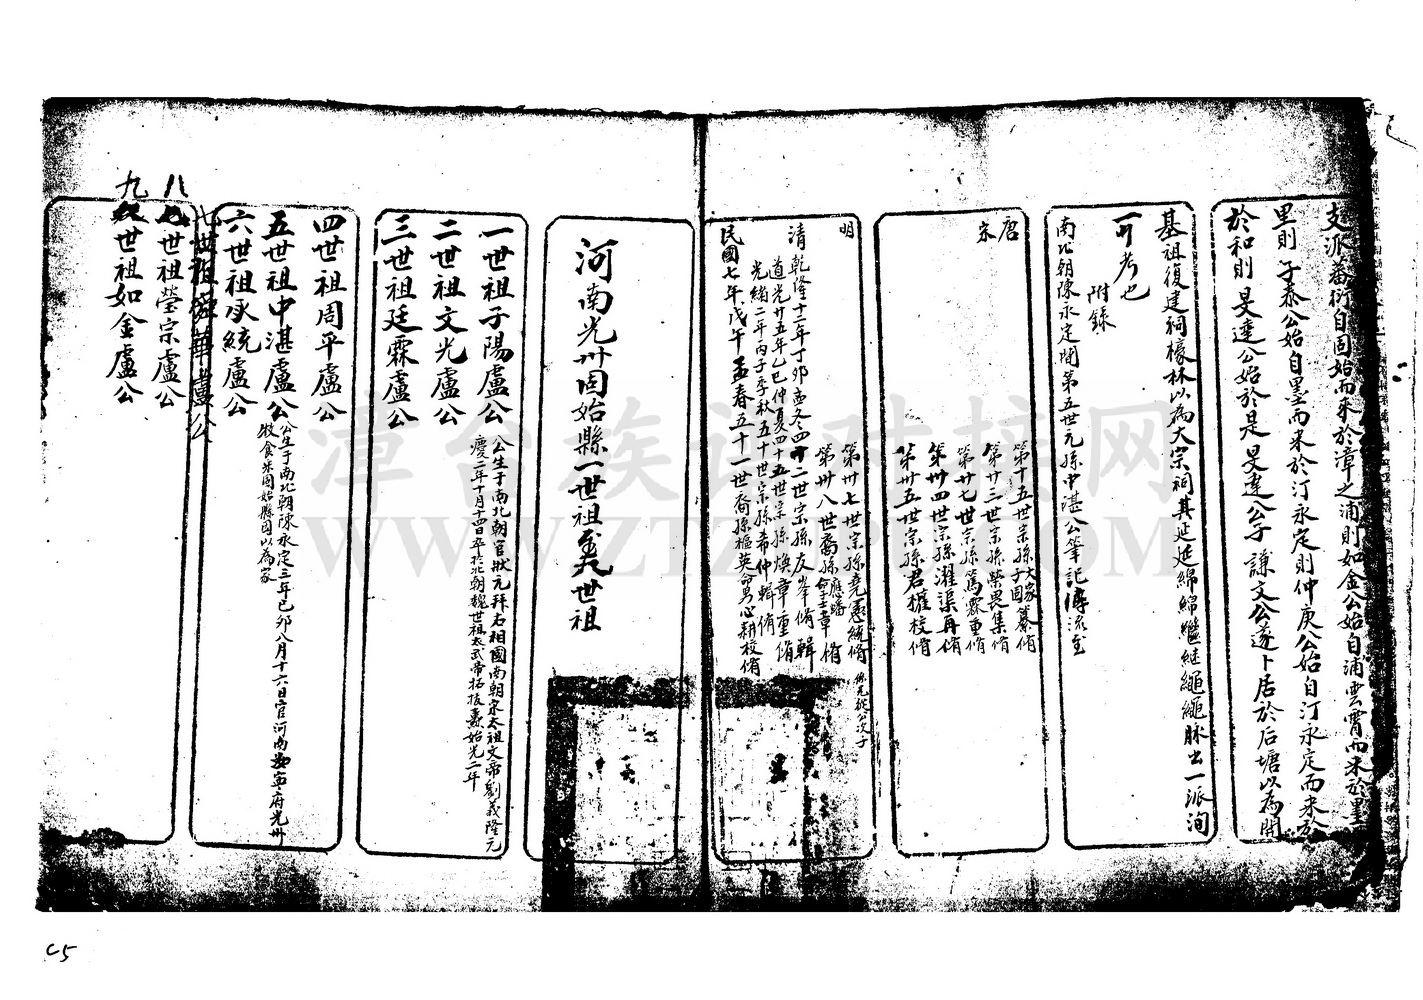 支派蕃衍自固始而來於漳之浦則如金公始自浦雲霄而來於墨
里則子泰公始自墨而來於汀永定則仲庚公始自汀永定而來
於和則旻達公始於是旻達公子謙文公遂卜居於后塘以為開
基祖復建祠檺林以為大宗祠其延延綿綿繼繼繩繩脉出一派洵
可考也
附錄
南北朝陳永定間第五世元孫中湛公筆記傳流至
唐
第十五世宗孫大家子固纂脩
宋
第廿三世宗孫榮畏集脩
第廿七世宗孫篤霖重脩
第卅四世宗孫濯渠再脩
第卅五世宗孫君擢校脩
明
第卅七世宗孫堯憲統脩
係元從公次子
第卅八世裔孫應蟠 士章脩
清乾隆十二年丁卯孟冬四十二世宗孫友峯脩輯
道光廿五年乙巳仲夏四十五世宗孫煥章重脩
光緒二年丙子季秋五十世宗孫希仲輯脩
民國七年戊午孟春五十一世裔孫樞英命男心耕校脩
河南光州固始縣一世祖至九世祖
一世祖子陽盧公
公生于南北朝官狀元拜右相國南朝宋太祖文帝劉義隆元
慶二年十月十四日卒於北朝魏世祖太武帝拓拔燾始光二年
二世祖文光盧公
三世祖廷霖盧公
四世祖周平盧公
五世祖中湛盧公
公生于南北朝陳永定三年己卯八月十六日官河南汝寧府光州
牧食采固始縣因以為家
六世祖承統盧公
七世祖舜華盧公
八世祖瑩宗盧公
九世祖如金盧公
漳台族谱对接网
WWW.ZTZUPU.COM
C5